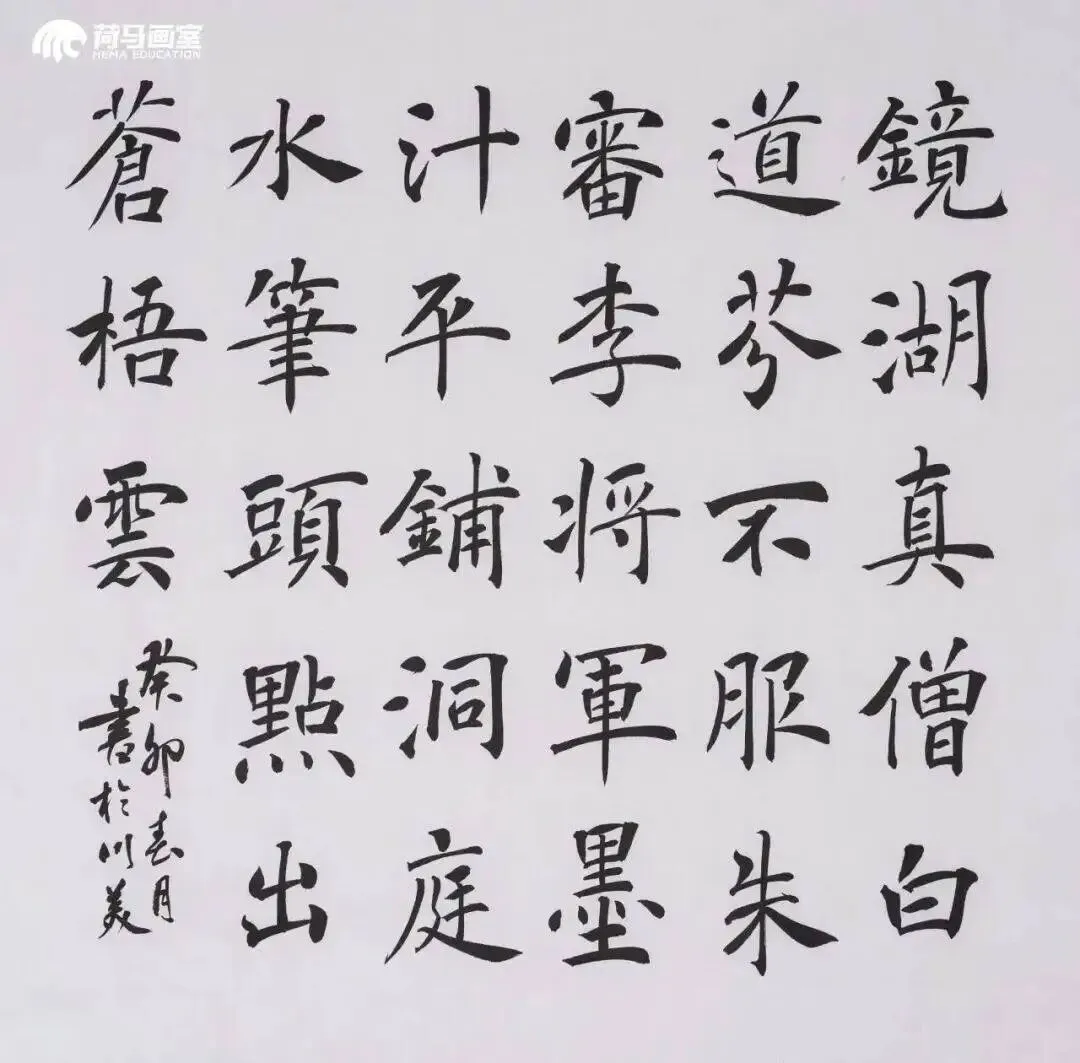 荷马画室
HEMA EDUCATION
鏡湖真僧白
道芬不服朱
審李将軍墨
汁平鋪洞庭
水筆頭點出
蒼梧雲
癸卯春月
書於川美